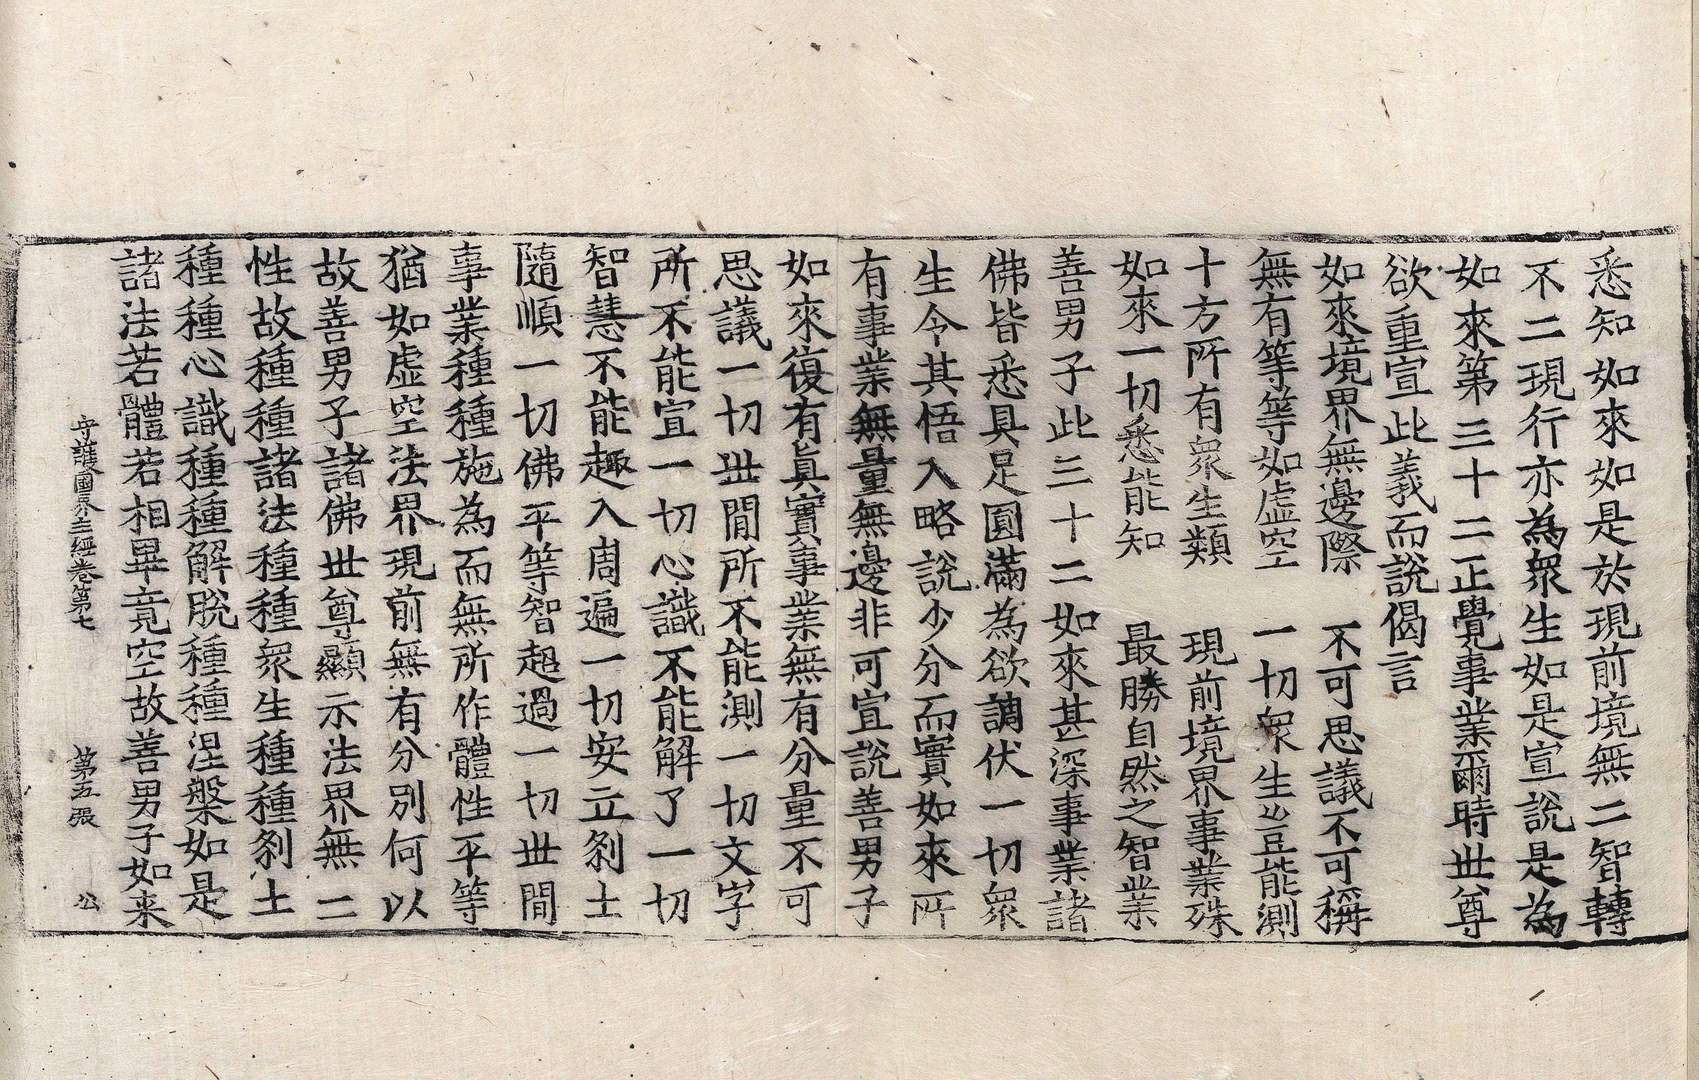 悉知如來如是於現前境無二智轉
不二現行亦為衆生如是宣說是為
如來第三十二正覺事業爾時世尊
欲重宣此義而說偈言
如來境界無邊際　不可思議不可稱
無有等等如虛空　一切衆生豈能測
十方所有衆生類　現前境界事業殊
如來一切悉能知　最勝自然之智業
善男子此三十二如來甚深事業諸
佛皆悉具足圓滿為欲調伏一切衆
生令其悟入略說少分而實如來所
有事業無量無邊非可宣說善男子
如來復有真實事業無有分量不可
思議一切世間所不能測一切文字
所不能宣一切心識不能解了一切
智慧不能趣入周遍一切安立剎土
隨順一切佛平等智超過一切世間
事業種種施為而無所作體性平等
猶如虛空法界現前無有分別何以
故善男子諸佛世尊顯示法界無二
性故種種諸法種種衆生種種剎土
種種心識種種解脫種種涅槃如是
諸法若體若相畢竟空故善男子如来
守護國界主經卷第七　第五張　公